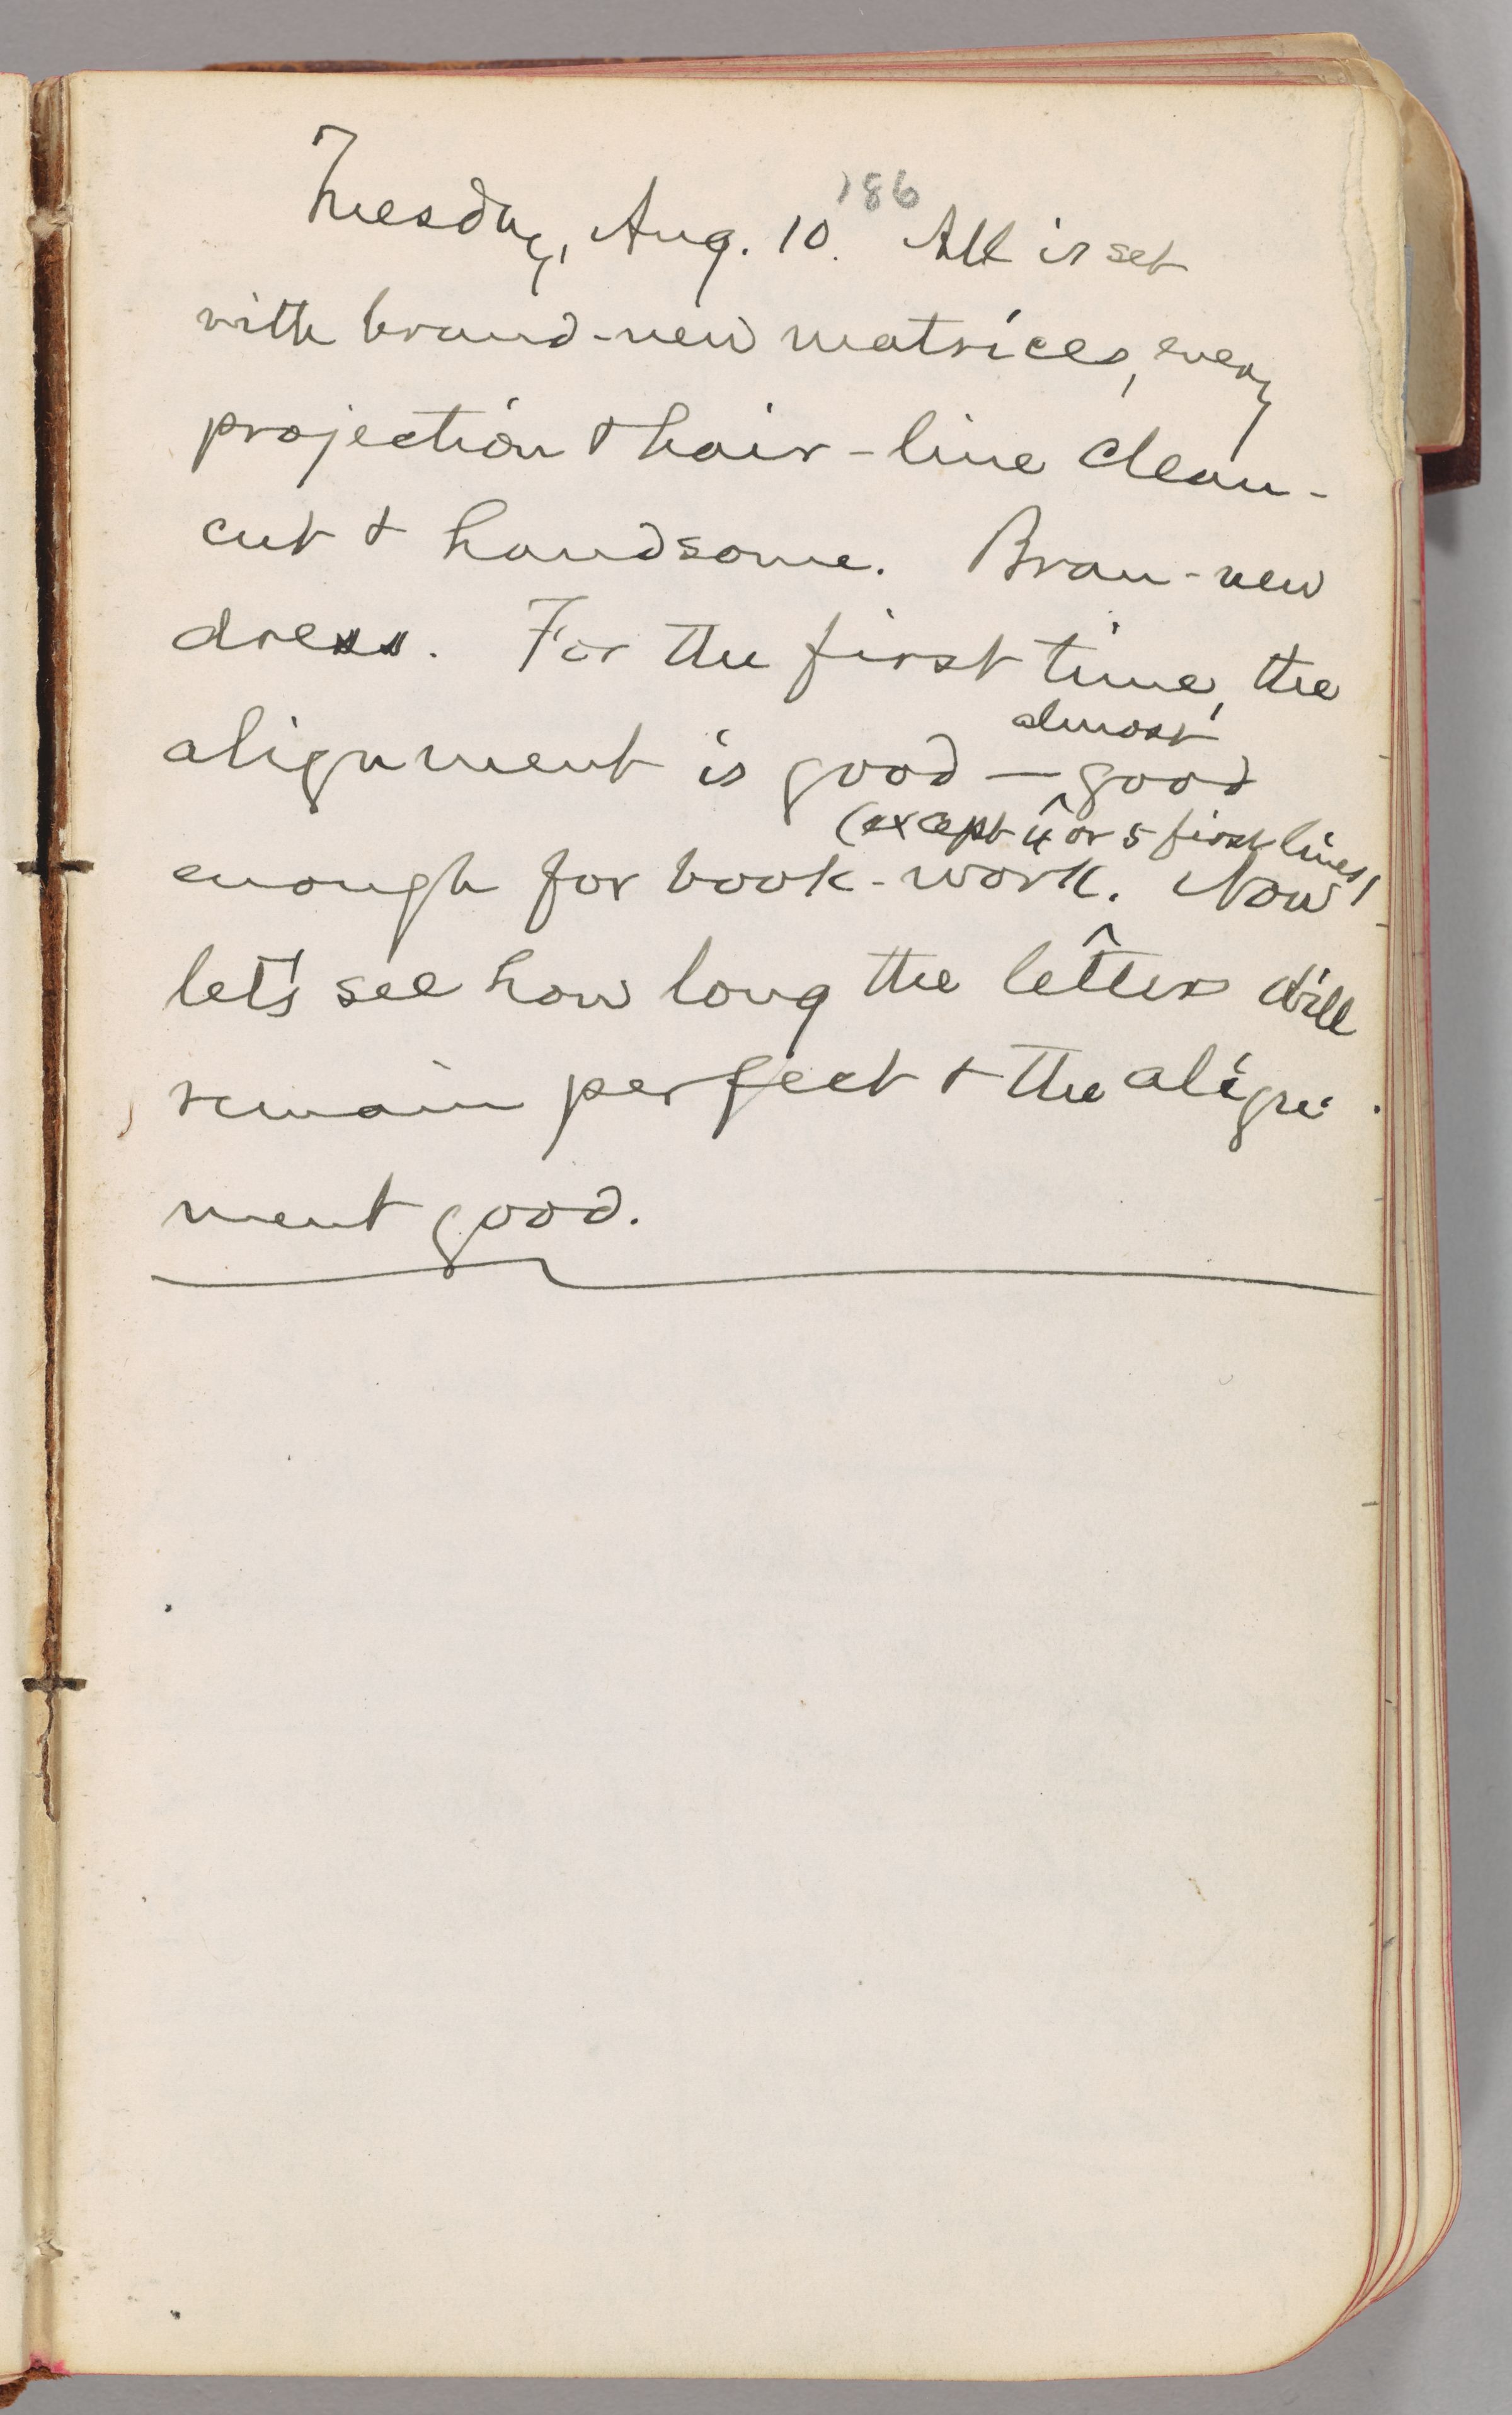 Tuesday, Aug. 10. '86 All is set
with brand-new matrices, every
projection & hair-line clean-
cut & handsome. Bran-new
dress. For the first time, the
almost
alignment is good — good
(except 4 or 5 first lines)
enough for book-work. Now
let's see how long the letters will
remain perfect & the align-
ment good.